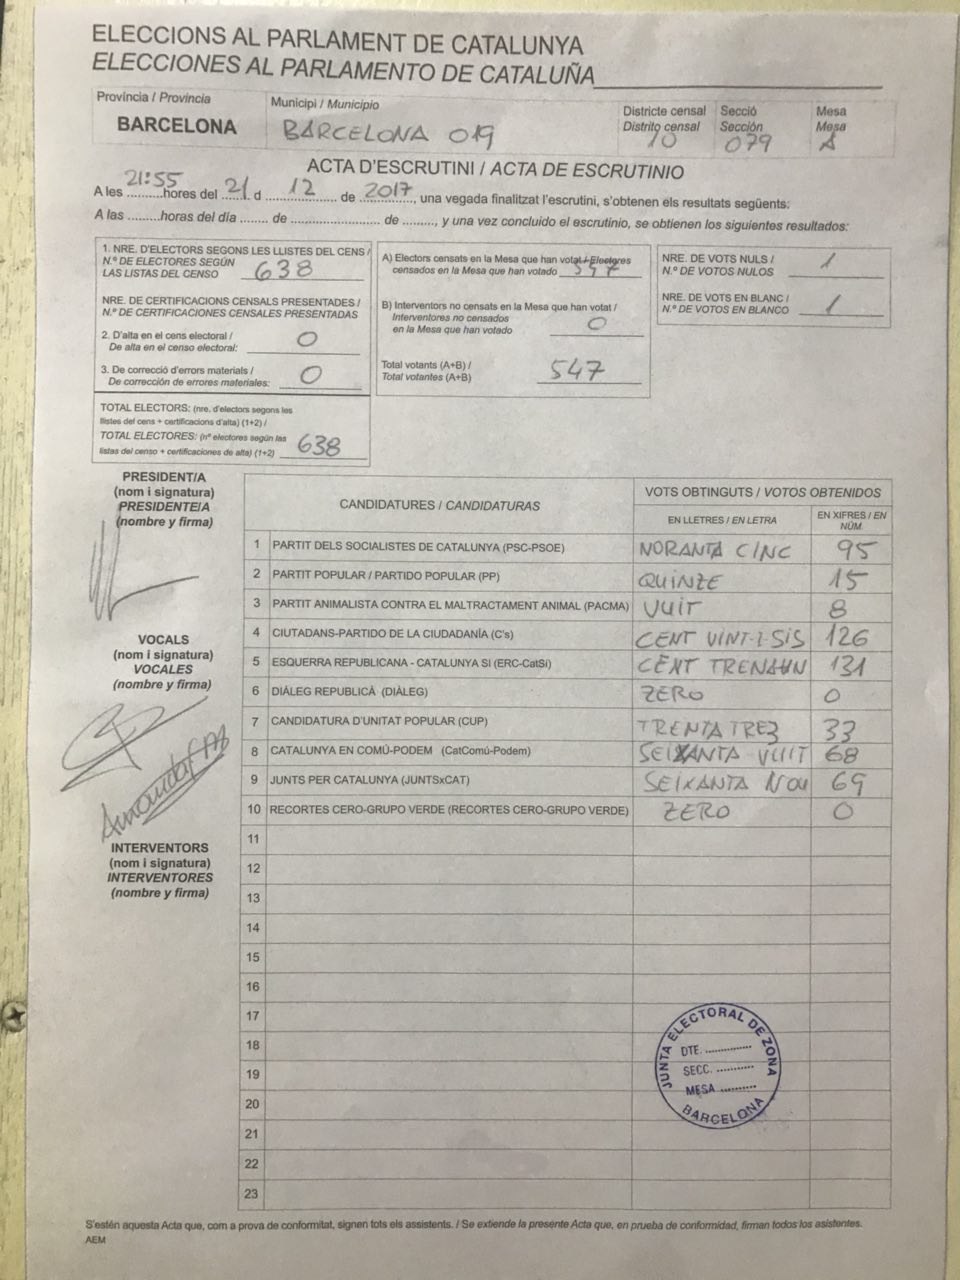 ELECCIONS AL PARLAMENT DE CATALUNYA
ELECCIONES AL PARLAMENTO DE CATALUÑA
Província / Provincia
BARCELONA
Municipi / Municipio
BARCELONA 019
Districte censal
Distrito censal
10
Secció
Sección
079
Mesa
Mesa
A
ACTA D'ESCRUTINI / ACTA DE ESCRUTINIO
A les 21:55 hores del 21 d 12 de 2017, una vegada finalitzat l'escrutini, s'obtenen els resultats següents:
A las .........horas del día ....... de ....................... de ........, y una vez concluido el escrutinio, se obtienen los siguientes resultados:
1. NRE. D'ELECTORS SEGONS LES LLISTES DEL CENS /
N.º DE ELECTORES SEGÚN
LAS LISTAS DEL CENSO 638
NRE. DE CERTIFICACIONS CENSALS PRESENTADES /
N.º DE CERTIFICACIONES CENSALES PRESENTADAS
2. D'alta en el cens electoral /
De alta en el censo electoral: 0
3. De correcció d'errors materials /
De corrección de errores materiales: 0
TOTAL ELECTORS: (nre. d'electors segons les
llistes del cens + certificacions d'alta) (1+2) /
TOTAL ELECTORES: (nº electores según las
listas del censo + certificaciones de alta) (1+2) 638
A) Electors censats en la Mesa que han votat / Electores
censados en la Mesa que han votado 547
B) Interventors no censats en la Mesa que han votat /
Interventores no censados
en la Mesa que han votado 0
Total votants (A+B) /
Total votantes (A+B) 547
NRE. DE VOTS NULS /
N.º DE VOTOS NULOS 1
NRE. DE VOTS EN BLANC /
N.º DE VOTOS EN BLANCO 1
PRESIDENT/A
(nom i signatura)
PRESIDENTE/A
(nombre y firma)
VOCALS
(nom i signatura)
VOCALES
(nombre y firma)
INTERVENTORS
(nom i signatura)
INTERVENTORES
(nombre y firma)
CANDIDATURES / CANDIDATURAS
VOTS OBTINGUTS / VOTOS OBTENIDOS
EN LLETRES / EN LETRA
EN XIFRES / EN NÚM.
1 PARTIT DELS SOCIALISTES DE CATALUNYA (PSC-PSOE) NORANTA CINC 95
2 PARTIT POPULAR / PARTIDO POPULAR (PP) QUINZE 15
3 PARTIT ANIMALISTA CONTRA EL MALTRACTAMENT ANIMAL (PACMA) VUIT 8
4 CIUTADANS-PARTIDO DE LA CIUDADANÍA (C's) CENT VINT-I-SIS 126
5 ESQUERRA REPUBLICANA - CATALUNYA SI (ERC-CatSí) CENT 131
6 DIÀLEG REPUBLICÀ (DIÀLEG) ZERO 0
7 CANDIDATURA D'UNITAT POPULAR (CUP) TRENTA TRES 33
8 CATALUNYA EN COMÚ-PODEM (CatComú-Podem) SEIXANTA VUIT 68
9 JUNTS PER CATALUNYA (JUNTSxCAT) SEIXANTA NOU 69
10 RECORTES CERO-GRUPO VERDE (RECORTES CERO-GRUPO VERDE) ZERO 0
11
12
13
14
15
16
17
18
19
20
21
22
23
JUNTA ELECTORAL DE ZONA
DTE. ............
SECC. ...........
MESA ..........
BARCELONA
S'estén aquesta Acta que, com a prova de conformitat, signen tots els assistents. / Se extiende la presente Acta que, en prueba de conformidad, firman todos los asistentes.
AEM